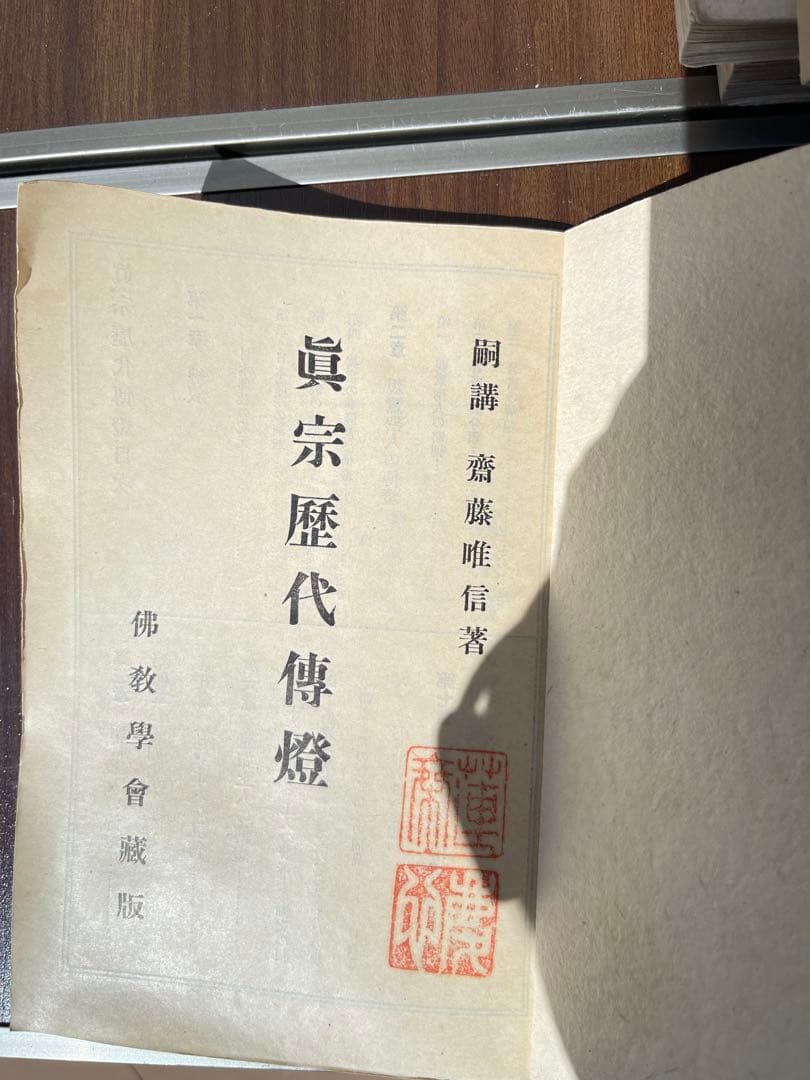 嗣講 齋藤唯信著
眞宗歷代傳燈
佛敎學會藏版